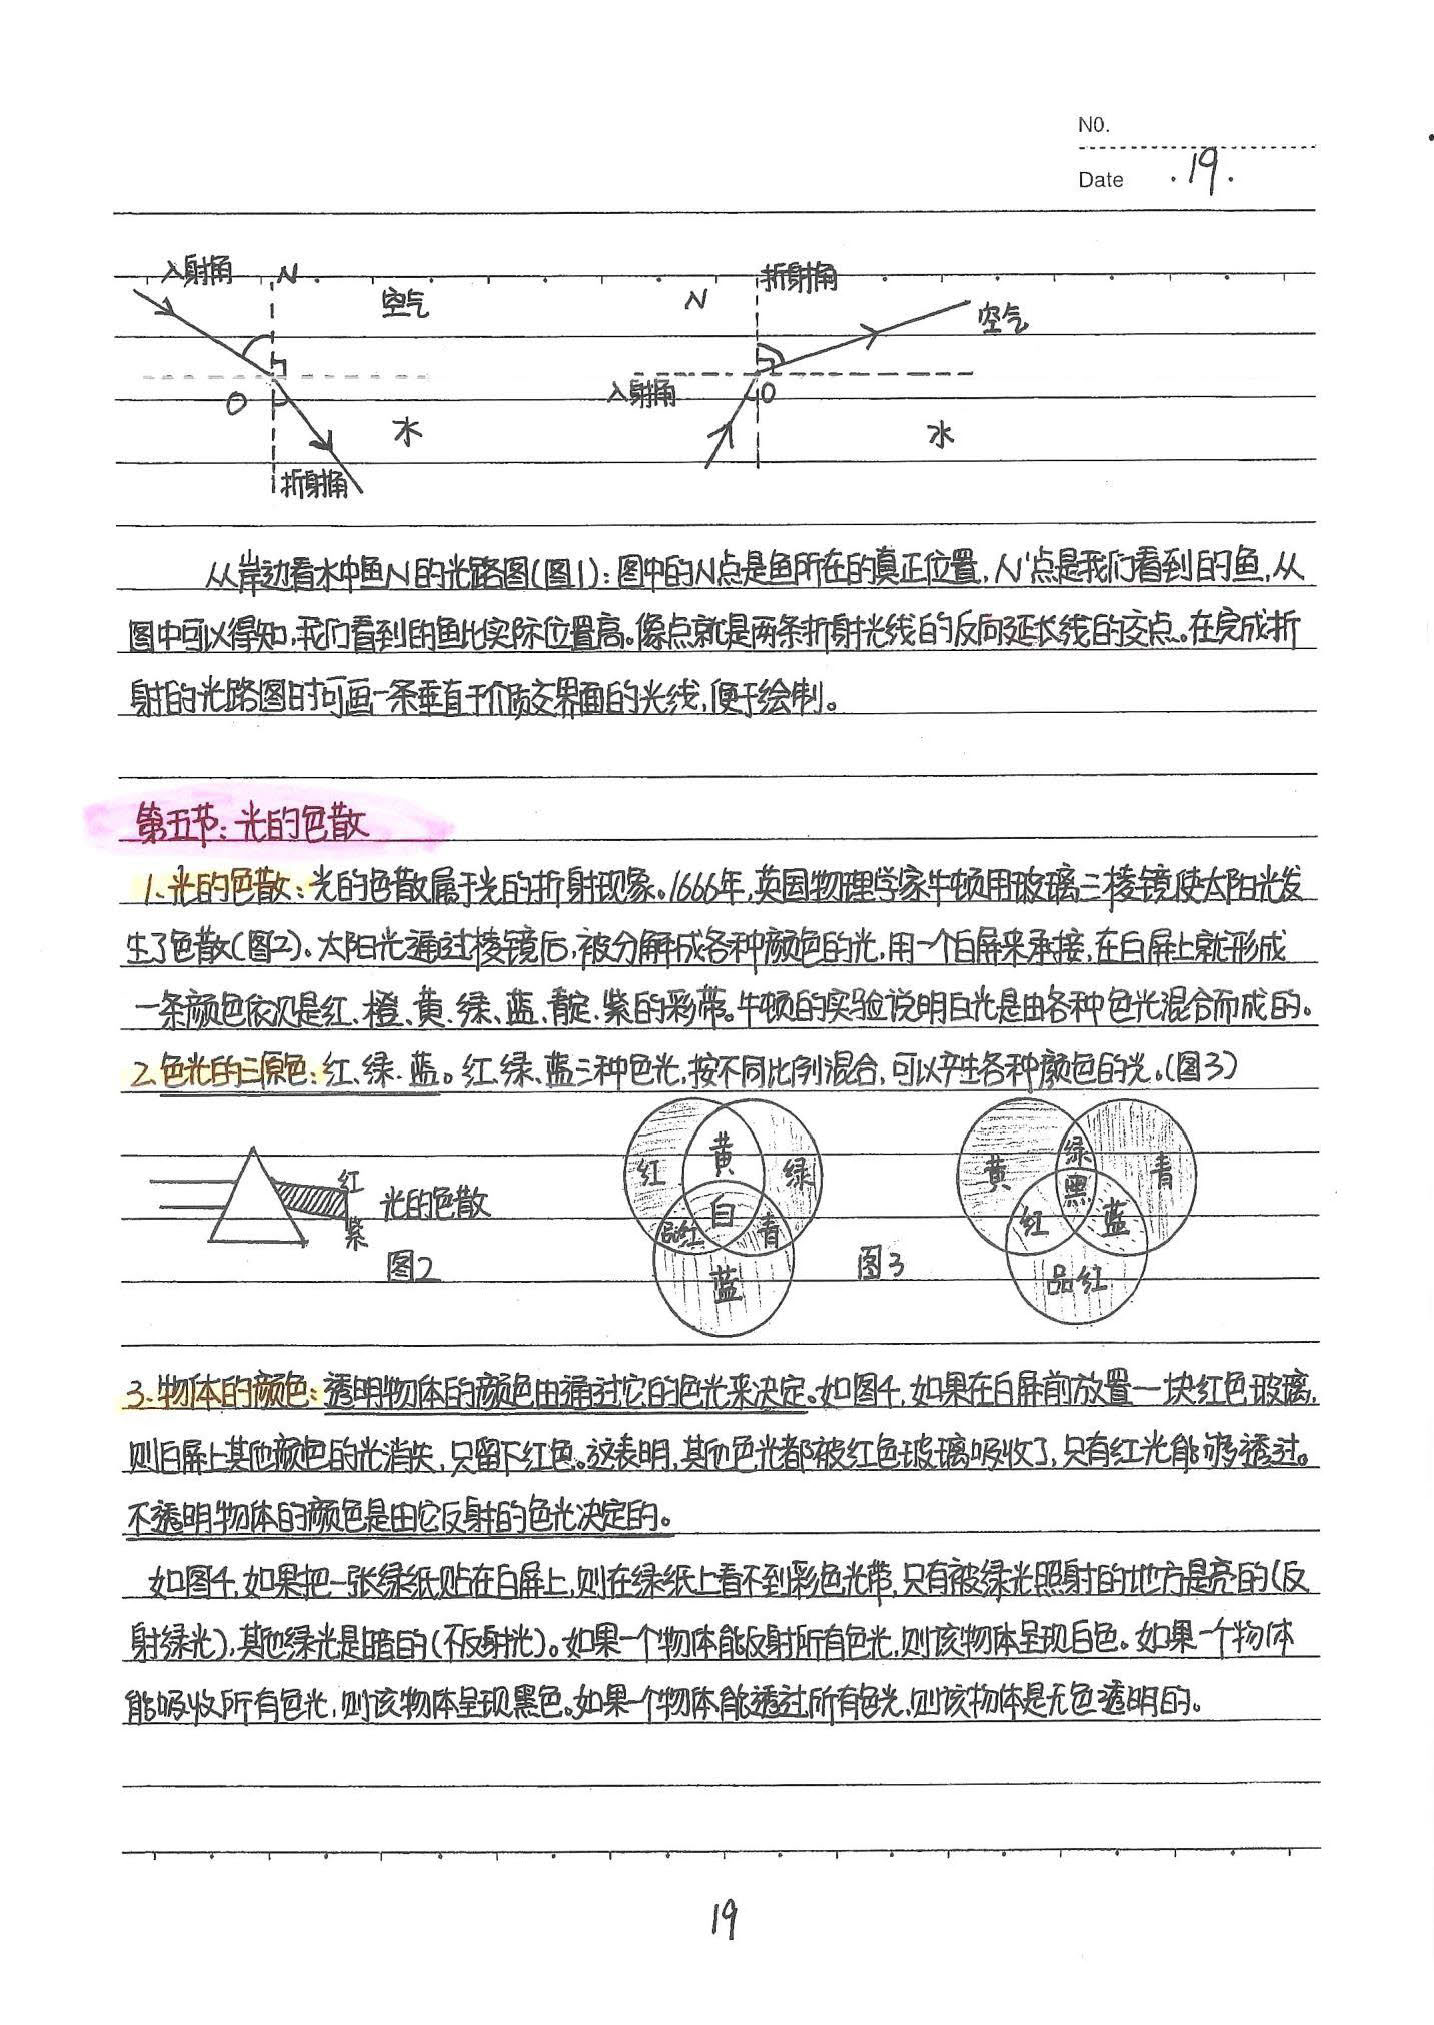 NO.
Date .19.
入射角 N 空气 O 水 折射角
N 折射角 空气 入射角 O 水
从岸边看水中鱼N的光路图(图1):图中的N点是鱼所在的真正位置,N'点是我们看到的鱼,从
图中可以得知,我们看到的鱼比实际位置高。像点就是两条折射光线的反向延长线的交点。在完成折
射的光路图时可画一条垂直于介质交界面的光线,便于绘制。
第五节:光的色散
1.光的色散:光的色散属于光的折射现象。1666年,英国物理学家牛顿用玻璃三棱镜使太阳光发
生了色散(图2)。太阳光通过棱镜后,被分解成各种颜色的光,用一个白屏来承接,在白屏上就形成
一条颜色依次是红、橙、黄、绿、蓝、靛、紫的彩带。牛顿的实验说明白光是由各种色光混合而成的。
2.色光的三原色:红、绿、蓝。红、绿、蓝三种色光,按不同比例混合,可以产生各种颜色的光。(图3)
红 紫 光的色散 图2
红 黄 绿 白 品红 青 蓝 图3
黄 绿 青 黑 红 蓝 品红
3.物体的颜色:透明物体的颜色由通过它的色光来决定。如图4,如果在白屏前放置一块红色玻璃,
则白屏上其他颜色的光消失,只留下红色。这表明,其他色光都被红色玻璃吸收了,只有红光能够透过。
不透明物体的颜色是由它反射的色光决定的。
如图4,如果把一张绿纸贴在白屏上,则在绿纸上看不到彩色光带,只有被绿光照射的地方是亮的(反
射绿光),其他绿光是暗的(不反射光)。如果一个物体能反射所有色光,则该物体呈现白色。如果一个物体
能吸收所有色光,则该物体呈现黑色。如果一个物体能透过所有色光,则该物体是无色透明的。
19